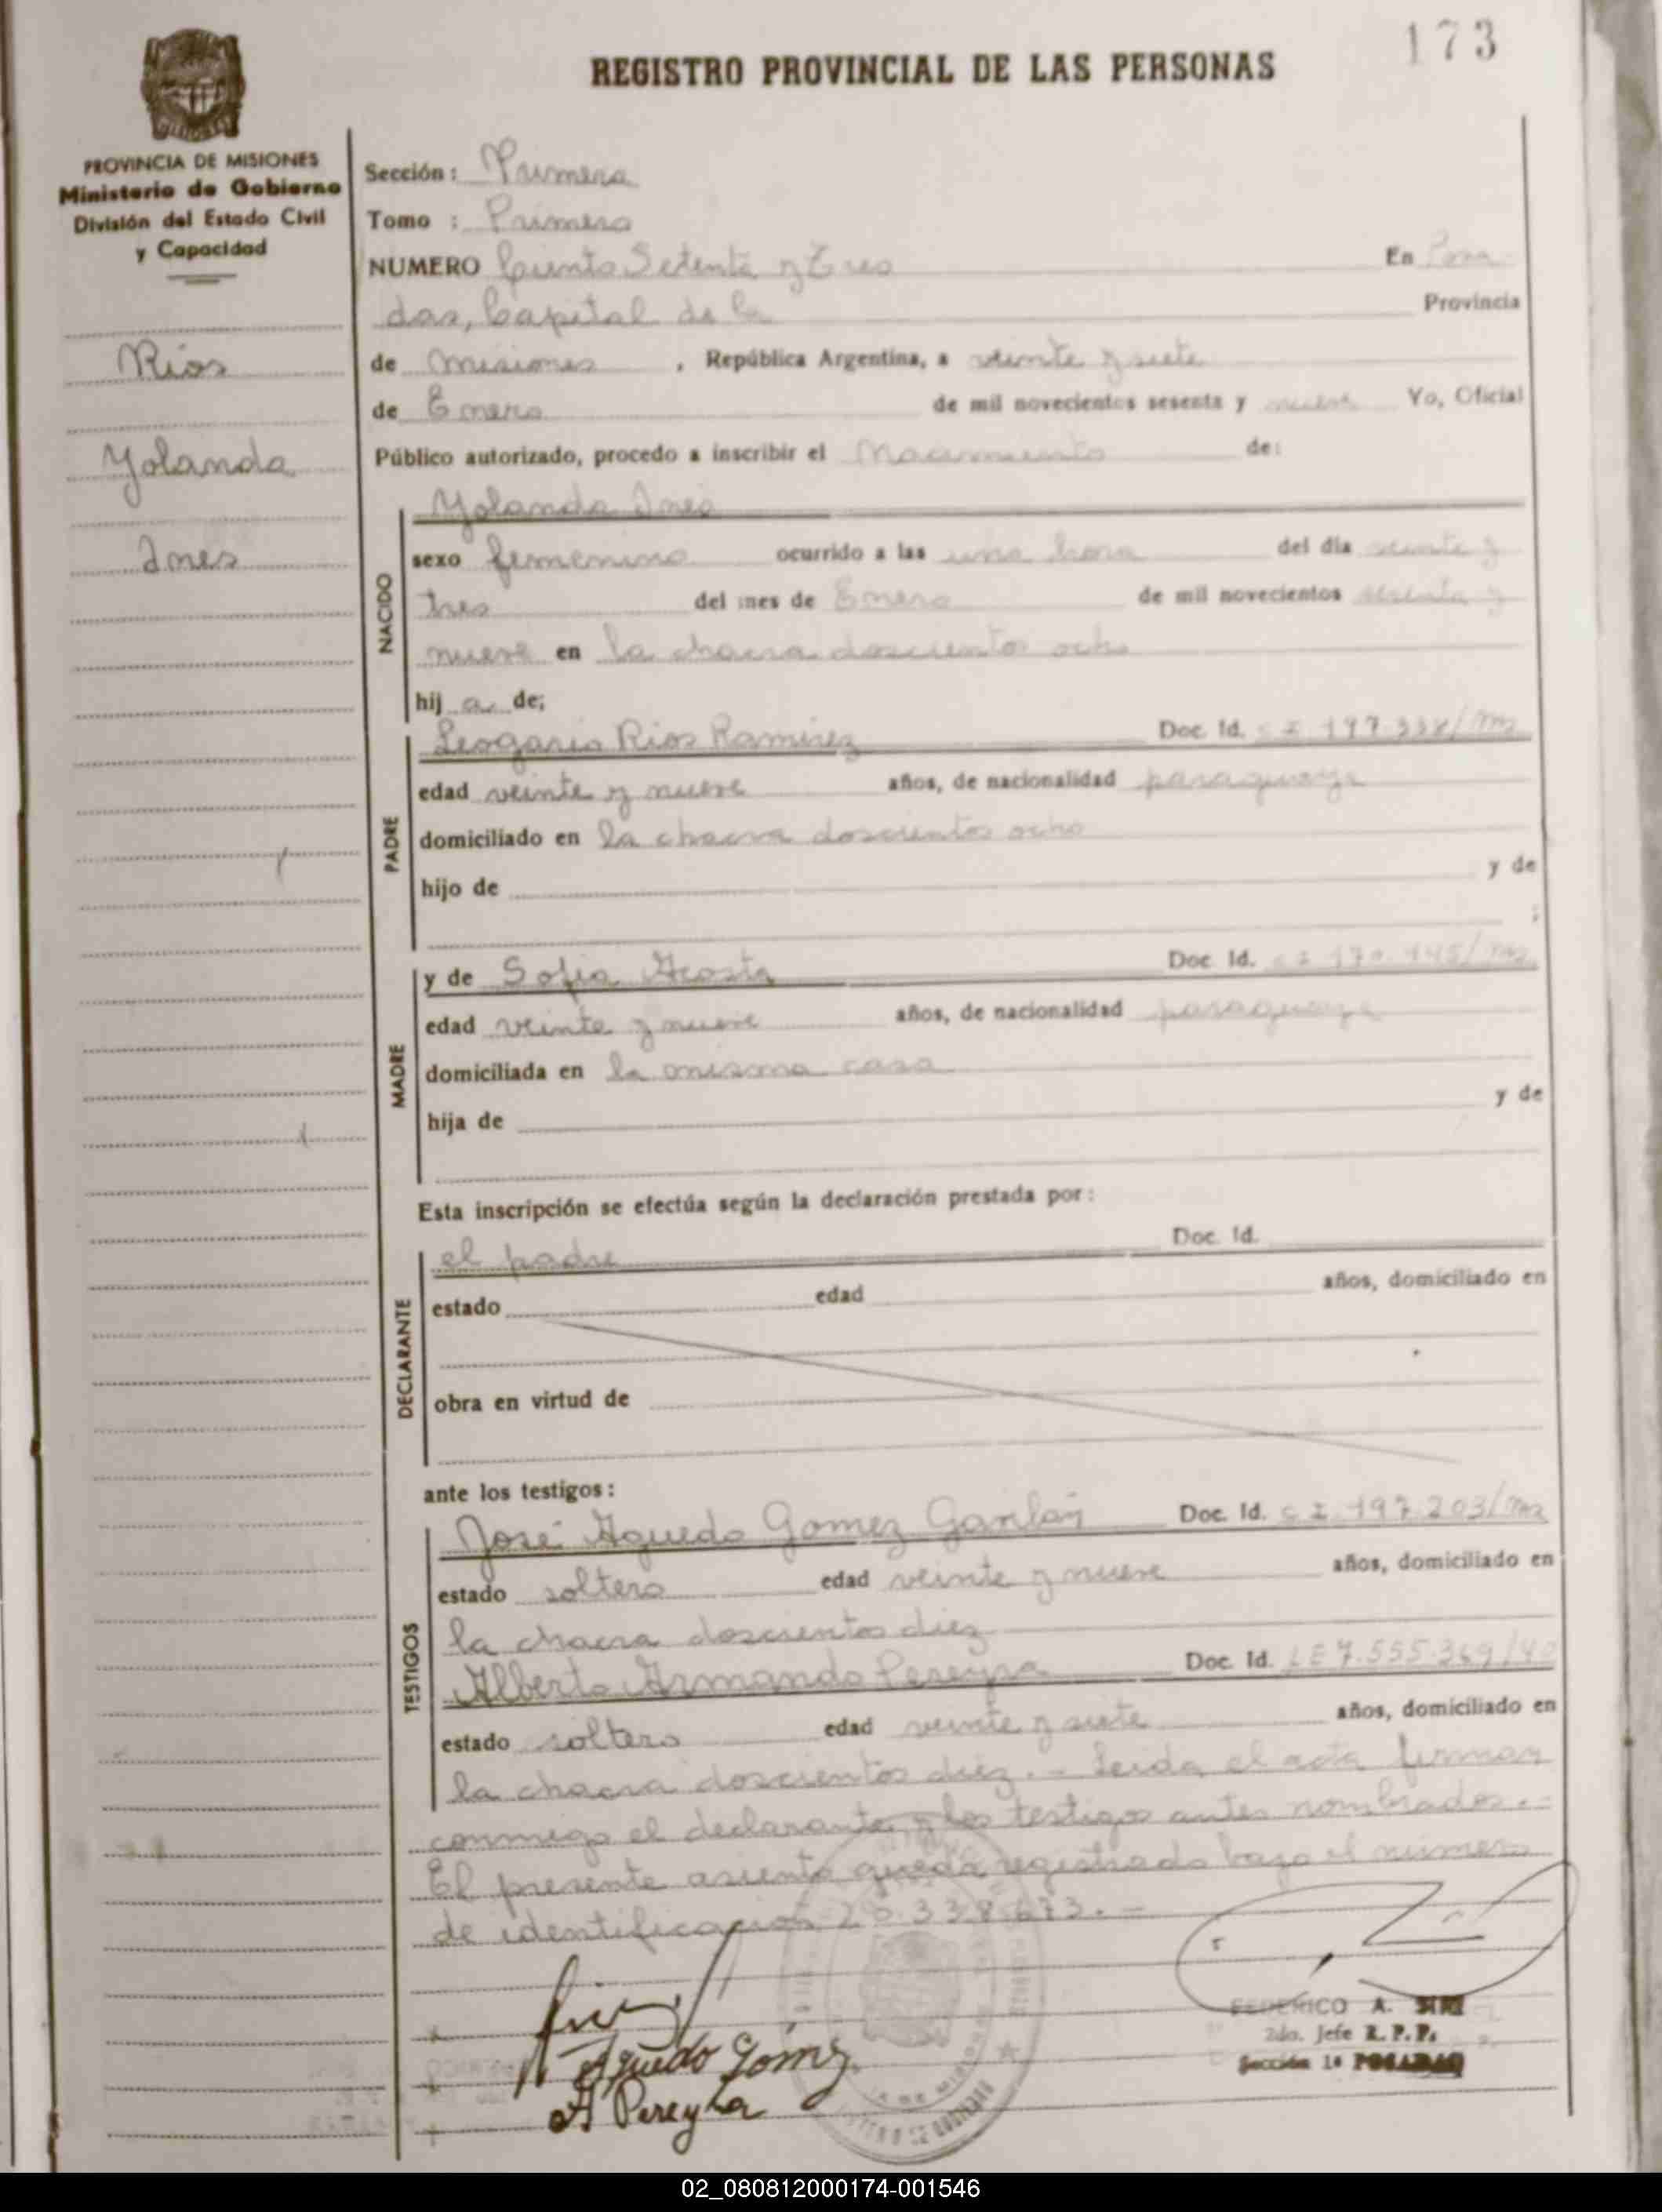 173
REGISTRO PROVINCIAL DE LAS PERSONAS
PROVINCIA DE MISIONES
Ministerio de Gobierno
División del Estado Civil
y Capacidad
Rios
Yolanda
Ines
Sección: Primera
Tomo : Primero
NUMERO Ciento Setenta y Tres En Posa
das, Capital de la Provincia
de Misiones , República Argentina, a veinte y siete
de Enero de mil novecientos sesenta y nueve Yo, Oficial
Público autorizado, procedo a inscribir el Nacimiento de:
NACIDO
Yolanda Ines
sexo femenino ocurrido a las una hora del día veinte y
tres del mes de Enero de mil novecientos sesenta y
nueve en la chacra doscientos ocho
hij a de;
PADRE
Leogario Rios Ramirez Doc. Id. C I 197.338/Mns
edad veinte y nueve años, de nacionalidad paraguaya
domiciliado en la chacra doscientos ocho
hijo de y de
;
MADRE
y de Sofia Acosta Doc. Id. C I 170.445/Mns
edad veinte y nueve años, de nacionalidad paraguaya
domiciliada en la misma casa
hija de y de
Esta inscripción se efectúa según la declaración prestada por:
DECLARANTE
el padre Doc. Id.
estado edad años, domiciliado en
obra en virtud de
ante los testigos:
TESTIGOS
José Aguedo Gomez Doc. Id. C I 197.203/Mns
estado soltero edad veinte y nueve años, domiciliado en
la chacra doscientos diez
Alberto Armando Pereyra Doc. Id. L E 7.555.369/40
estado soltero edad veinte y siete años, domiciliado en
la chacra doscientos diez.- Leida el acta firman
conmigo el declarante y los testigos antes nombrados.-
El presente asiento queda registrado bajo el número
de identificación 20.338.673.-
Aguedo Gómez
A Pereyra
FEDERICO A.
2do. Jefe R.P.P.
Sección 1ª POSADAS
02_080812000174-001546